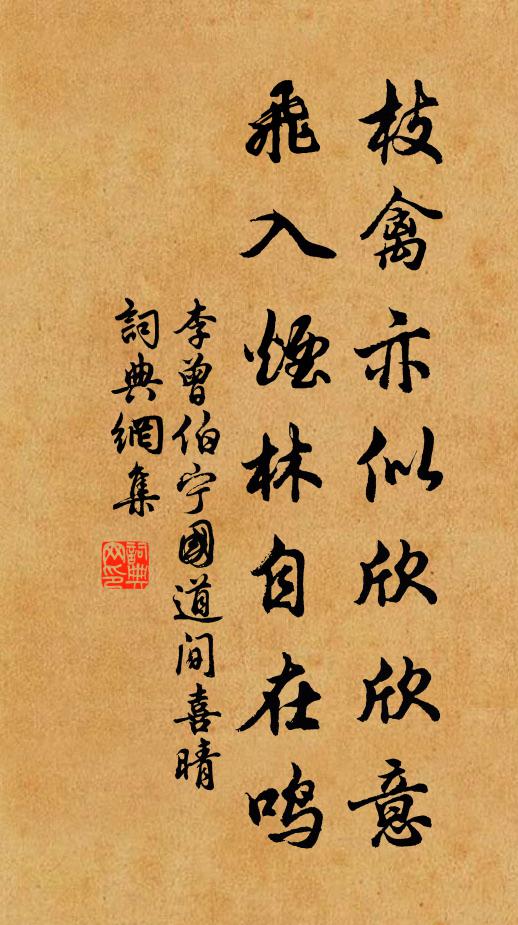 枝禽亦似欣欣意
飛入煙林自在鸣
李曾伯宁國道间喜晴
詞典網集
詞典
网印